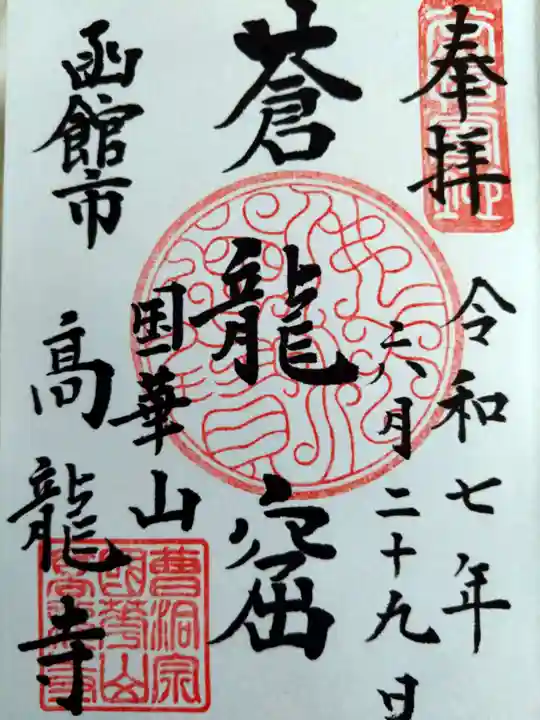 奉拝
令和七年
六月二十九日
蒼龍窟
国華山
函館市
高龍寺
曹洞宗
國華山
高龍寺